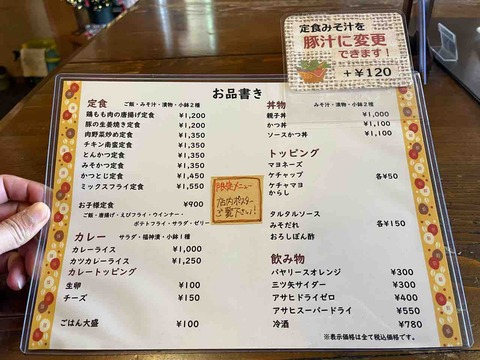 定食みそ汁を
豚汁に変更
できます!
+¥120
お品書き
定食 ご飯・みそ汁・漬物・小鉢2種
鶏もも肉の唐揚げ定食 ¥1,200
豚の生姜焼き定食 ¥1,200
肉野菜炒め定食 ¥1,350
チキン南蛮定食 ¥1,350
とんかつ定食 ¥1,350
みそかつ定食 ¥1,350
かつとじ定食 ¥1,450
ミックスフライ定食 ¥1,550
お子様定食 ¥900
ご飯・唐揚げ・えびフライ・ウインナー・
ポテトフライ・サラダ・ゼリー
カレー サラダ・福神漬・小鉢1種
カレーライス ¥1,000
カツカレーライス ¥1,250
カレートッピング
生卵 ¥100
チーズ ¥150
ごはん大盛 ¥100
限定メニュー
店内ポスター
ご覧下さい!
丼物 みそ汁・漬物・小鉢2種
親子丼 ¥1,000
かつ丼 ¥1,100
ソースかつ丼 ¥1,100
トッピング
マヨネーズ
ケチャップ 各¥50
ケチャマヨ
からし
タルタルソース
みそだれ 各¥150
おろしぽん酢
飲み物
バヤリースオレンジ ¥300
三ツ矢サイダー ¥300
アサヒドライゼロ ¥400
アサヒスーパードライ ¥550
冷酒 ¥780
※表示価格は全て税込価格です。